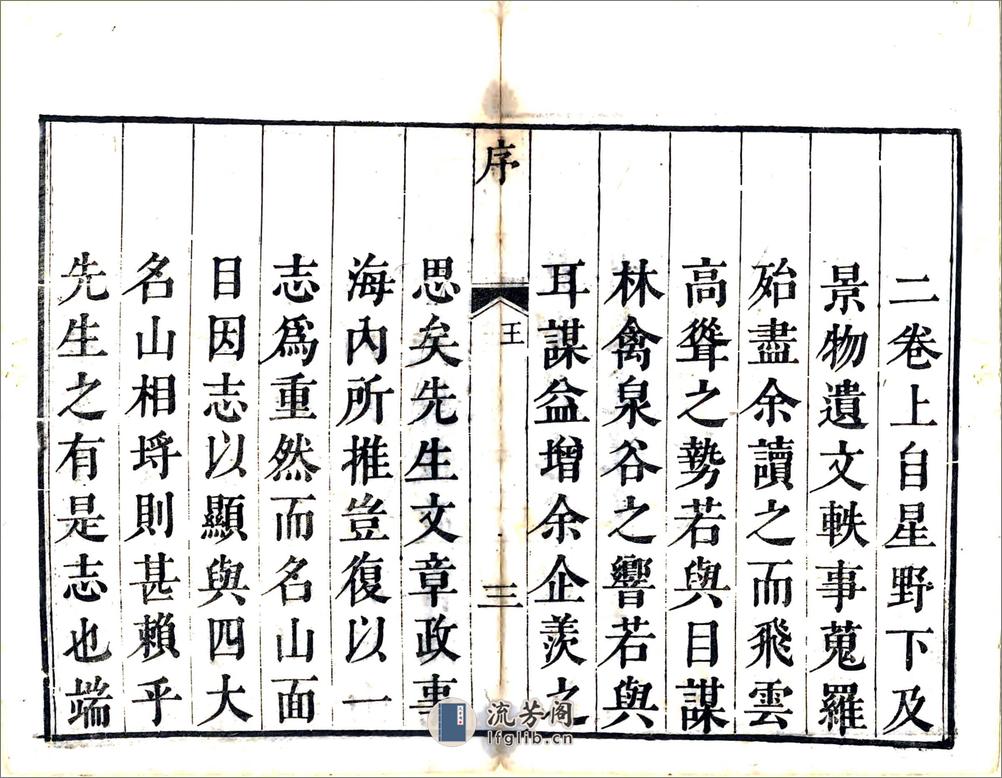 二卷上自星野下及
景物遺文軼事蒐羅
殆盡余讀之而飛雲
高聳之勢若與目謀
林禽泉谷之響若與
耳謀益增余企羨之
序
王
三
思矣先生文章政事
海內所推豈復以一
志爲重然而名山面
目因志以顯與四大
名山相埒則甚賴乎
先生之有是志也端
流芳阁
lfglib.cn